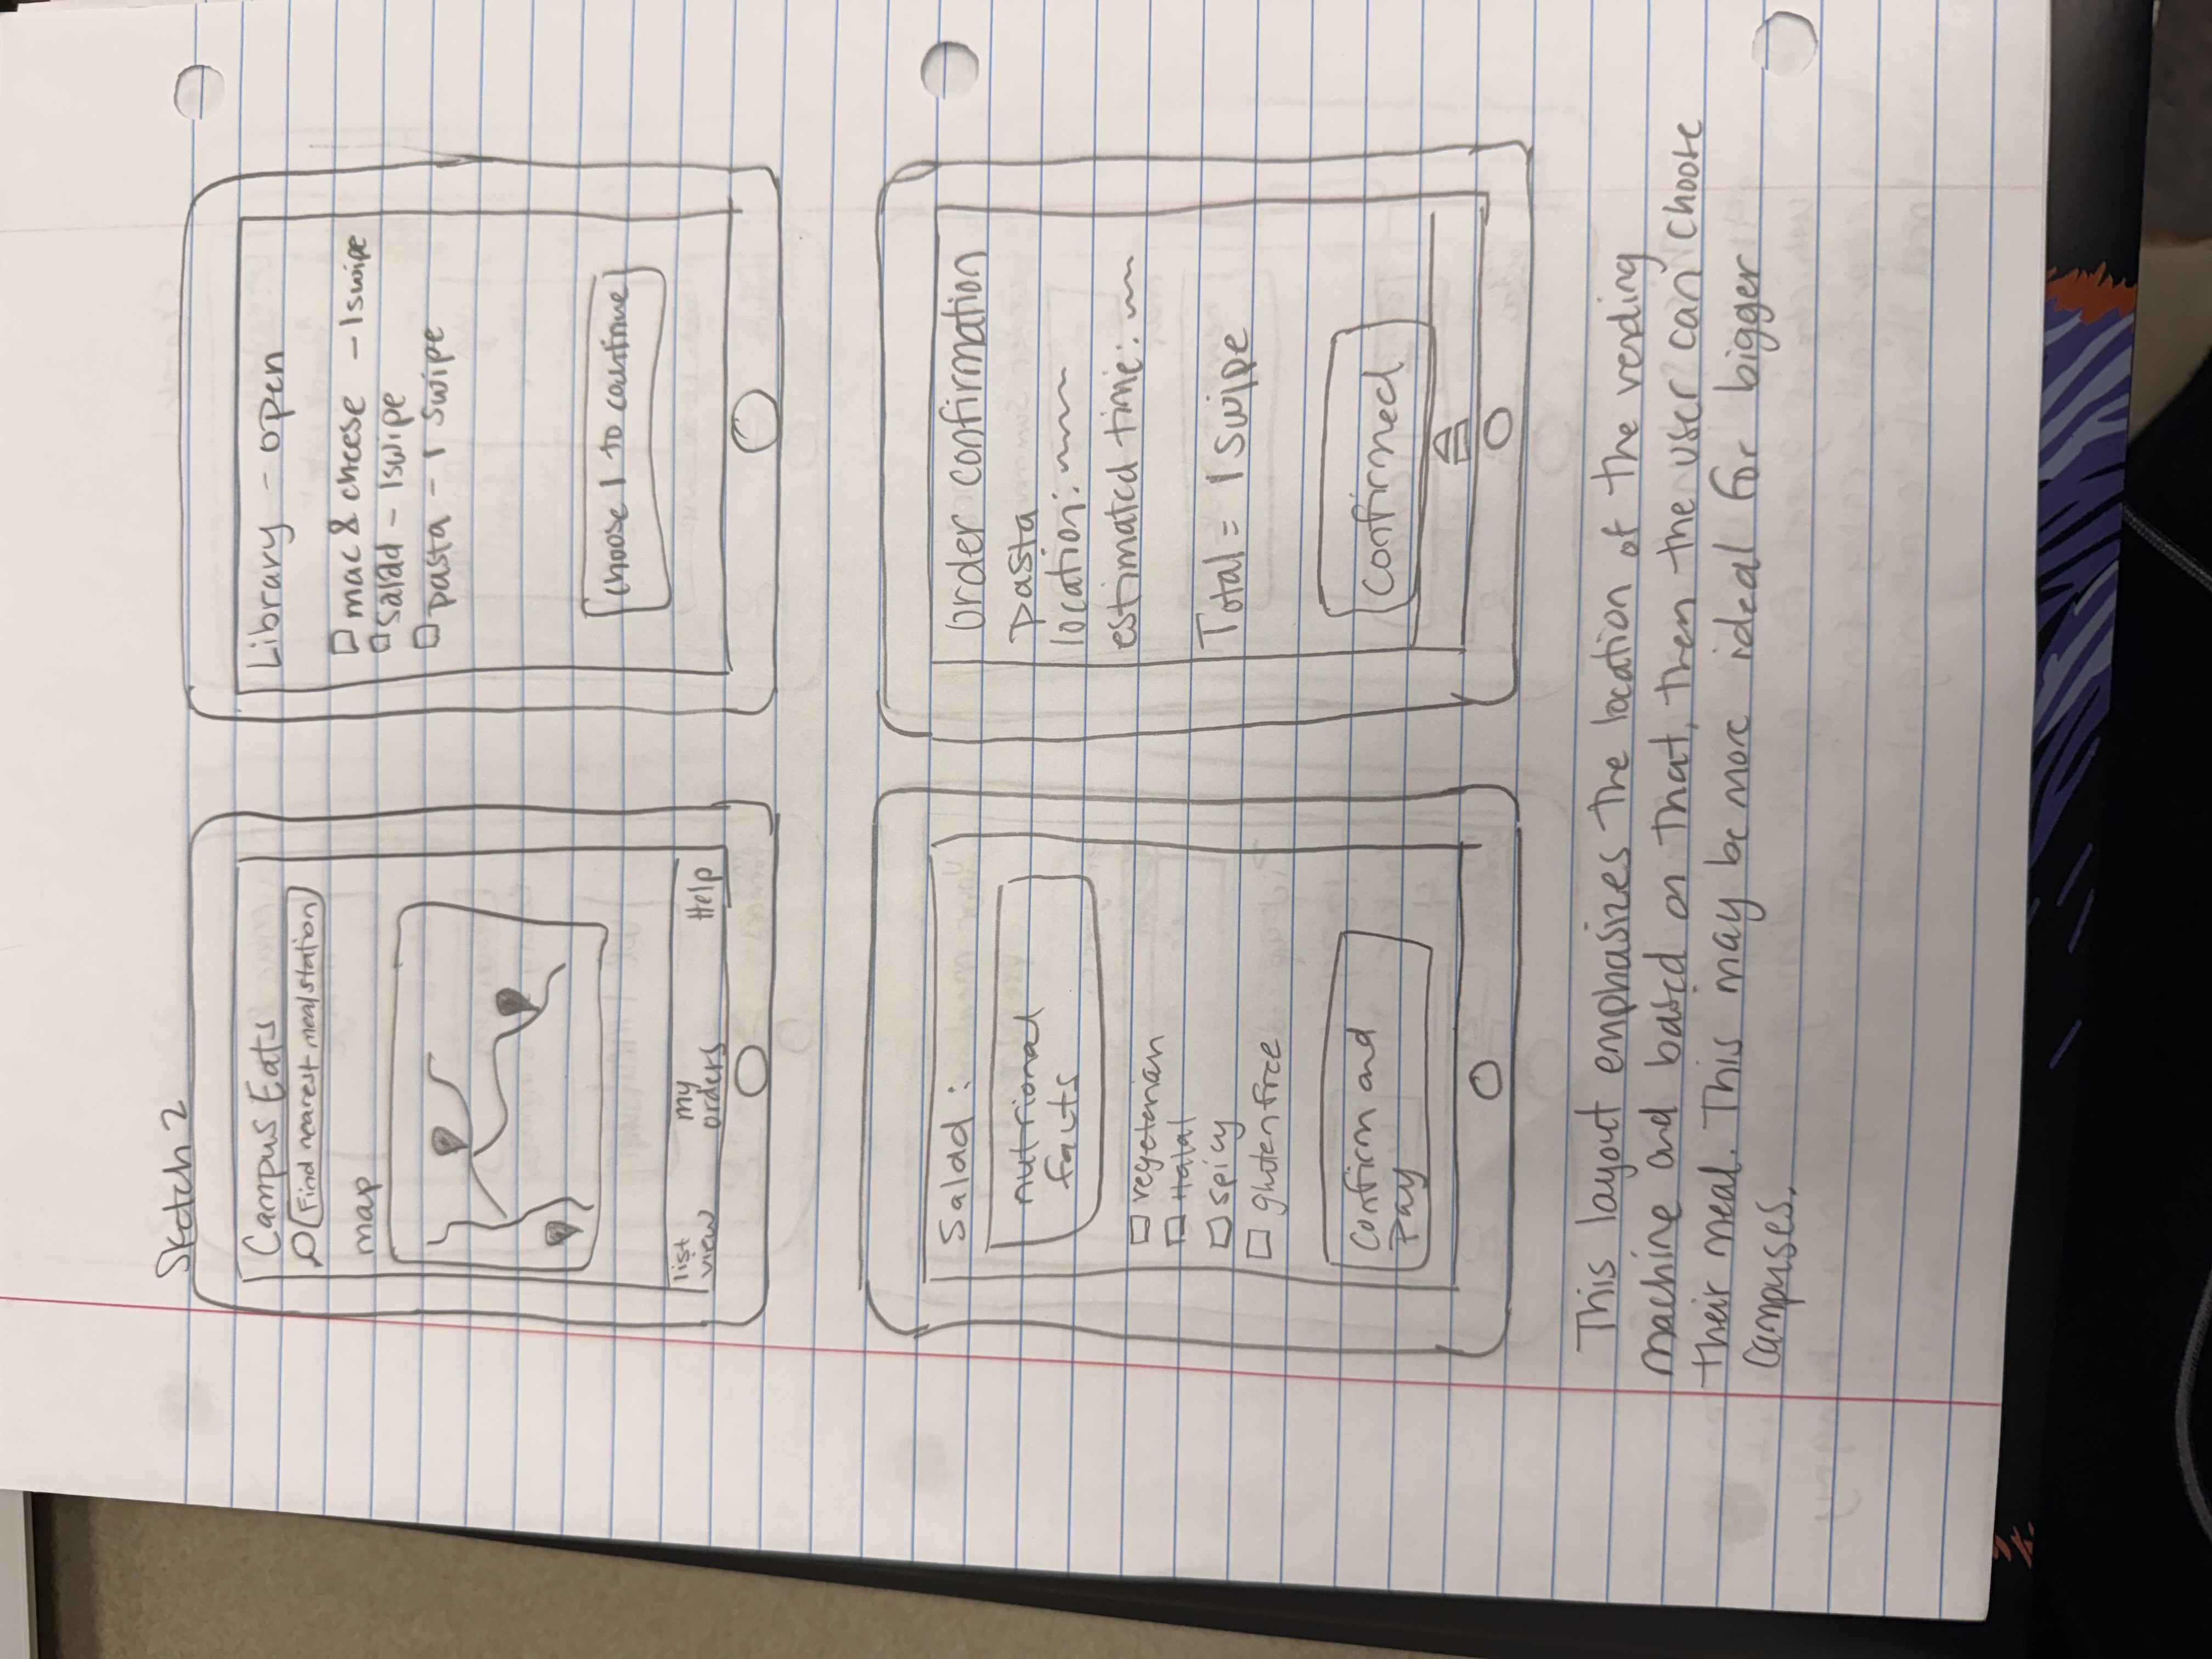 Sketch 2
Campus Eats
Find nearest meal station
map
list
view
my
orders
Help
Library - open
mac & cheese - 1 swipe
salad - 1 swipe
pasta - 1 swipe
choose 1 to countinue
Salad:
nutrional
facts
vegeterian
Halal
spicy
gluten free
Confirm and
Pay
Order confirmation
pasta
location:
estimated time:
Total = 1 swipe
Confirmed
This layout emphasizes the location of the vending
machine and based on that, then the user can choose
their meal. This may be more ideal for bigger
campuses.